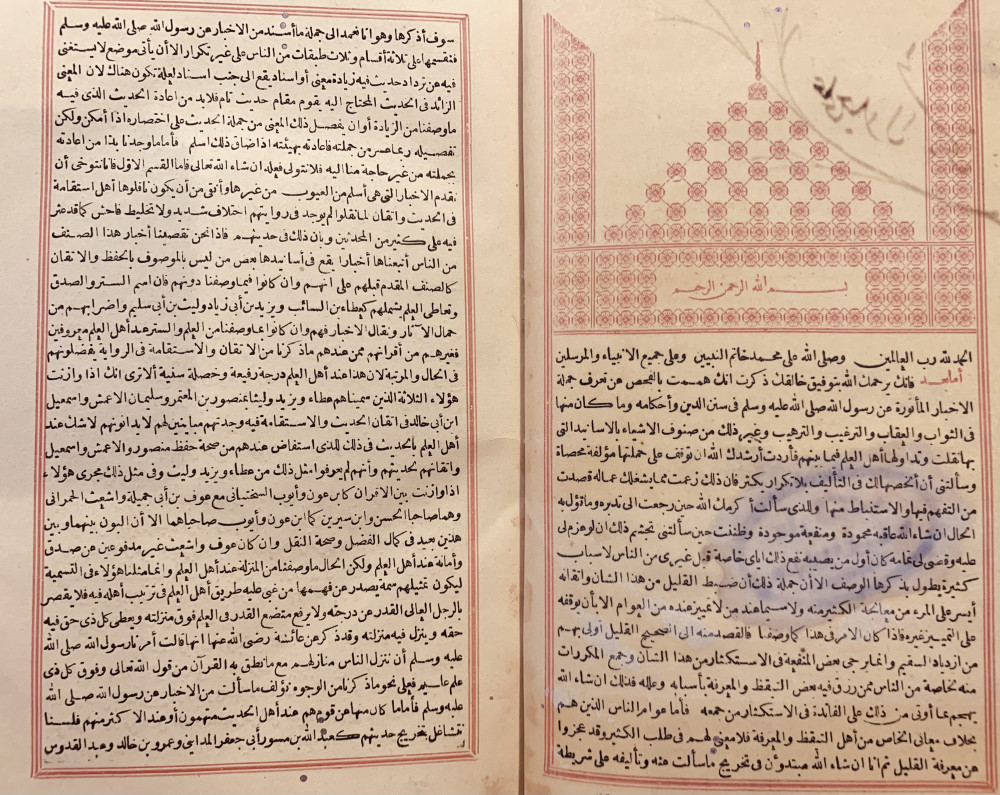 بسم الله الرحمن الرحيم
الحمد لله رب العالمين وصلى الله على محمد خاتم النبيين وعلى جميع الانبياء والمرسلين
أما بعد فانك يرحمك الله بتوفيق خالقك ذكرت انك هممت بالفحص عن تعرف جملة
الاخبار المأثورة عن رسول الله صلى الله عليه وسلم فى سنن الدين وأحكامه وما كان منها
فى الثواب والعقاب والترغيب والترهيب وغير ذلك من صنوف الاشياء بالاسانيد التى
بها نقلت وتداولها أهل العلم فيما بينهم فأردت أرشدك الله ان توقف على جملتها مؤلفة محصاة
وسألتنى أن ألخصها لك فى التأليف بلا تكرار يكثر فان ذلك زعمت مما يشغلك عما له قصدت
من التفهم فيها والاستنباط منها وللذى سألت أكرمك الله حين رجعت الى تدبره وما تؤل به
الحال ان شاء الله عاقبة محمودة ومنفعة موجودة وظننت حين سألتنى تجشيم ذلك ان لو عزم لى
عليه وقضى لى تمامه كان أول من يصيبه نفع ذلك اياى خاصة قبل غيرى من الناس لاسباب
كثيرة يطول بذكرها الوصف الا أن جملة ذلك أن ضبط القليل من هذا الشان واتقانه
أيسر على المرء من معالجة الكثير منه ولا سيما عند من لا تمييز عنده من العوام الا بأن يوقفه
على التمييز غيره فاذا كان الامر فى هذا كما وصفنا فالقصد منه الى الصحيح القليل أولى بهم
من ازدياد السقيم وانما يرجى بعض المنفعة فى الاستكثار من هذا الشان وجمع المكررات
منه لخاصة من الناس ممن رزق فيه بعض التيقظ والمعرفة بأسبابه وعلله فذلك ان شاء الله
يهجم بما أوتى من ذلك على الفائدة فى الاستكثار من جمعه فأما عوام الناس الذين هم
بخلاف معانى الخاص من أهل التيقظ والمعرفة فلا معنى لهم فى طلب الكثير وقد عجزوا
عن معرفة القليل ثم انا ان شاء الله مبتدؤن فى تخريج ما سألت عنه وتأليفه على شريطة
سوف أذكرها وهو انا نعمد الى جملة ما أسند من الاخبار عن رسول الله صلى الله عليه وسلم
فنقسمها على ثلاثة أقسام وثلاث طبقات من الناس على غير تكرار الا أن يأتى موضع لا يستغنى
فيه عن ترداد حديث فيه زيادة معنى أو اسناد يقع الى جنب اسناد لعلة تكون هناك لان المعنى
الزائد فى الحديث المحتاج اليه يقوم مقام حديث تام فلا بد من اعادة الحديث الذى فيه
ما وصفنا من الزيادة أو ان يفصل ذلك المعنى من جملة الحديث على اختصاره اذا أمكن ولكن
تفصيله ربما عسر من جملته فاعادته بهيئته اذا ضاق ذلك اسلم فأما ما وجدنا بدا من اعادته
بجملته من غير حاجة منا اليه فلا نتولى فعله ان شاء الله تعالى فاما القسم الاول فانا نتوخى أن
نقدم الاخبار التى هى أسلم من العيوب من غيرها وأنقى من أن يكون ناقلوها أهل استقامة
فى الحديث واتقان لما نقلوا لم يوجد فى روايتهم اختلاف شديد ولا تخليط فاحش كما قد عثر
فيه على كثير من المحدثين وبان ذلك فى حديثهم فاذا نحن تقصينا أخبار هذا الصنف
من الناس أتبعناها أخبارا يقع فى أسانيدها بعض من ليس بالموصوف بالحفظ والاتقان
كالصنف المقدم قبلهم على انهم وان كانوا فيما وصفنا دونهم فان اسم الستر والصدق
وتعاطى العلم يشملهم كعطاء بن السائب ويزيد بن أبى زياد وليث بن أبى سليم واضرابهم من
حمال الآثار ونقال الاخبار فهم وان كانوا بما وصفنا من العلم والستر عند أهل العلم معروفين
فغيرهم من أقرانهم ممن عندهم ما ذكرنا من الاتقان والاستقامة فى الرواية يفضلونهم
فى الحال والمرتبة لان هذا عند أهل العلم درجة رفيعة وخصلة سنية ألا ترى انك اذا وازنت
هؤلاء الثلاثة الذين سميناهم عطاء ويزيد وليثا بمنصور بن المعتمر وسليمان الاعمش واسمعيل
ابن أبى خالد فى اتقان الحديث والاستقامة فيه وجدتهم مباينين لهم لا يدانونهم لا شك عند
أهل العلم بالحديث فى ذلك للذى استفاض عندهم من صحة حفظ منصور والاعمش واسمعيل
واتقانهم لحديثهم وانهم لم يعرفوا مثل ذلك من عطاء ويزيد وليث وفى مثل ذلك مجرى هؤلاء
اذا وازنت بين الاقران كابن عون وأيوب السختيانى مع عوف بن أبى جميلة وأشعث الحمرانى
وهما صاحبا الحسن وابن سيرين كما ابن عون وأيوب صاحباهما الا أن البون بينهما وبين
هذين بعيد فى كمال الفضل وصحة النقل وان كان عوف وأشعث غير مدفوعين عن صدق
وأمانة عند أهل العلم ولكن الحال ما وصفنا من المنزلة عند أهل العلم وانما مثلنا هؤلاء فى التسمية
ليكون تمثيلهم سمة يصدر عن فهمها من غبى عليه طريق أهل العلم فى ترتيب أهله فيه فلا يقصر
بالرجل العالى القدر عن درجته ولا يرفع متضع القدر فى العلم فوق منزلته ويعطى كل ذى حق فيه
حقه وينزل فيه منزلته وقد ذكر عن عائشة رضى الله عنها انها قالت أمرنا رسول الله صلى الله
عليه وسلم أن ننزل الناس منازلهم مع ما نطق به القرآن من قول الله تعالى وفوق كل ذى
علم عليم فعلى نحو ما ذكرنا من الوجوه نؤلف ما سألت من الاخبار عن رسول الله صلى الله
عليه وسلم فأما ما كان منها عن قوم هم عند أهل الحديث متهمون أو عند الاكثر منهم فلسنا
نتشاغل بتخريج حديثهم كعبد الله بن مسور أبى جعفر المدائنى وعمرو بن خالد وعبد القدوس